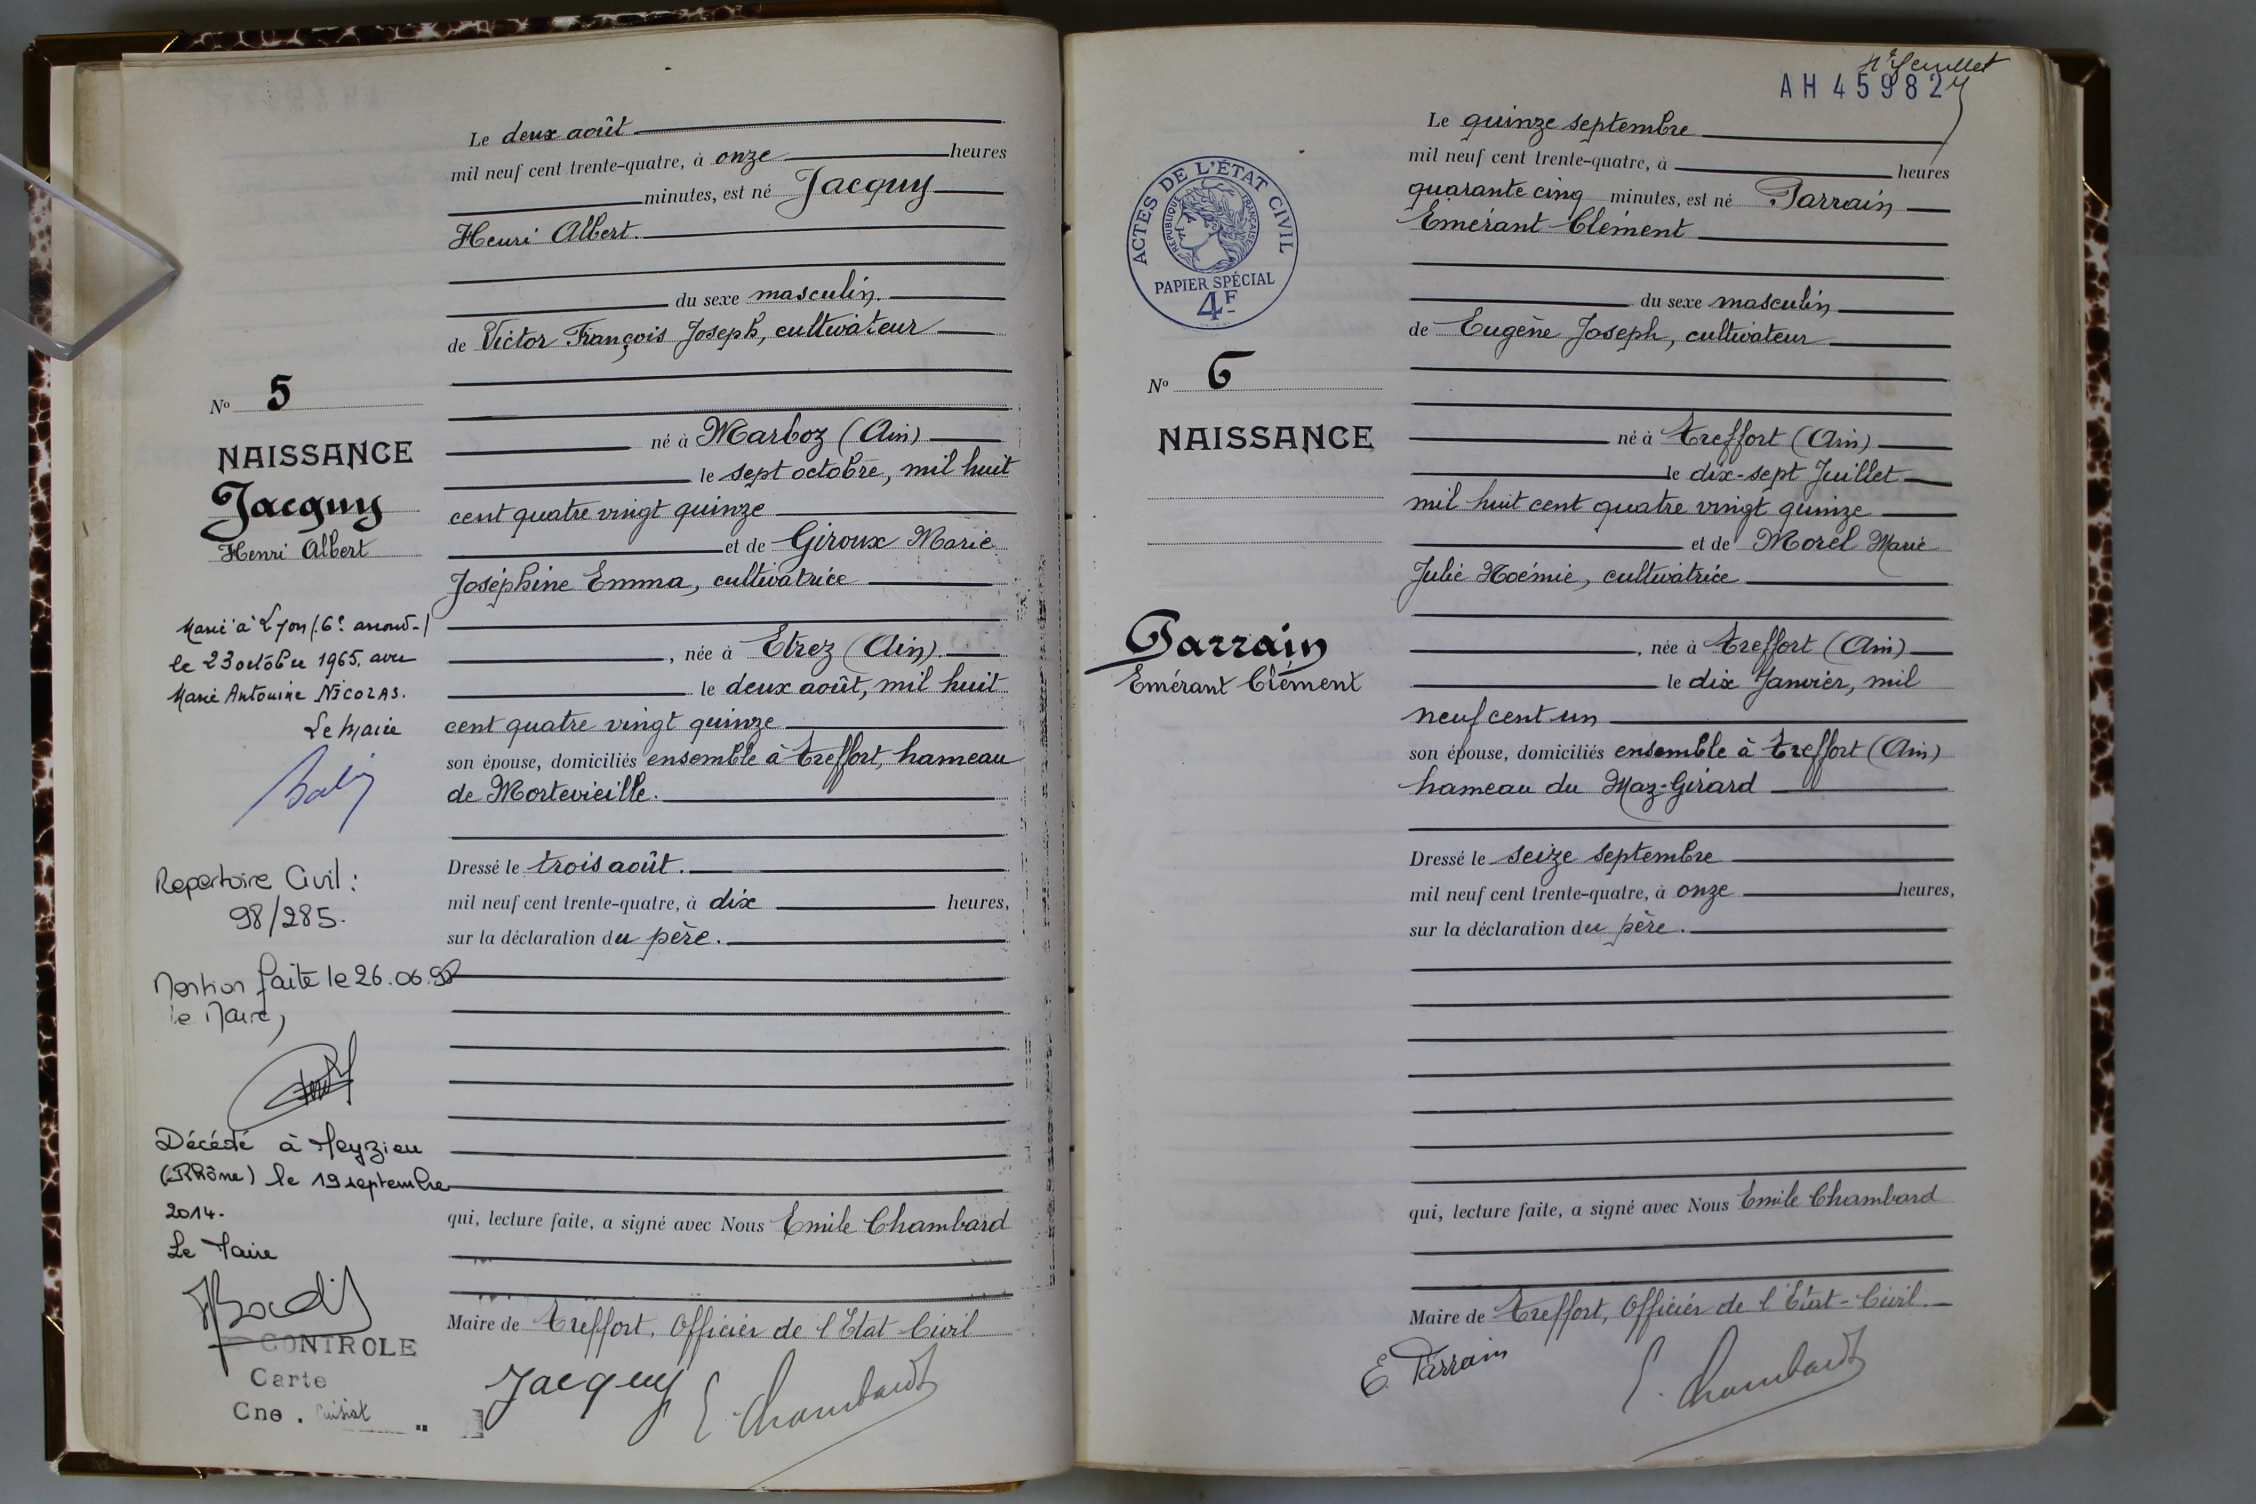 Le deux août
mil neuf cent trente-quatre, à onze heures
minutes, est né Jacquy
Henri Albert.
du sexe masculin.
de Victor François Joseph, cultivateur
né à Marboz (Ain)
le sept octobre, mil huit
cent quatre vingt quinze
et de Giroux Marie
Joséphine Emma, cultivatrice
, née à Etrez (Ain).
le deux août, mil huit
cent quatre vingt quinze
son épouse, domiciliés ensemble à Treffort, hameau
de Mortevieille.
Dressé le trois août.
mil neuf cent trente-quatre, à dix heures,
sur la déclaration du père.
qui, lecture faite, a signé avec Nous Emile Chambard
Maire de Treffort, Officier de l'Etat Civil
Jacquy E. Chambard
No 5
NAISSANCE
Jacquy
Henri Albert
Marié à Lyon (6e arrond-)
le 23 octobre 1965, avec
Marie Antoinine NICOLAS.
Le Maire
Repertoire Civil :
98/285.
Mention faite le 26.06.98
le Maire,
Décédé à Meyzieu
(Rhône) le 19 septembre
2014.
Le Maire
CONTROLE
Carte
Cne. Cuisiat
4e feuillet
AH45982
Le quinze septembre
mil neuf cent trente-quatre, à heures
quarante cinq minutes, est né Parrain
Emérant Clément
du sexe masculin
de Eugène Joseph, cultivateur
né à Treffort (Ain)
le dix-sept Juillet
mil huit cent quatre vingt quinze
et de Morel Marie
Julie Noémie, cultivatrice
, née à Treffort (Ain)
le dix Janvier, mil
neuf cent un
son épouse, domiciliés ensemble à Treffort (Ain)
hameau du Maz-Girard
Dressé le seize septembre
mil neuf cent trente-quatre, à onze heures,
sur la déclaration du père.
qui, lecture faite, a signé avec Nous Emile Chambard
Maire de Treffort, Officier de l'Etat-Civil.
E. Parrain E. Chambard
ACTES DE L'ÉTAT CIVIL
RÉPUBLIQUE FRANÇAISE
PAPIER SPÉCIAL
4F
No 6
NAISSANCE
Parrain
Emérant Clément